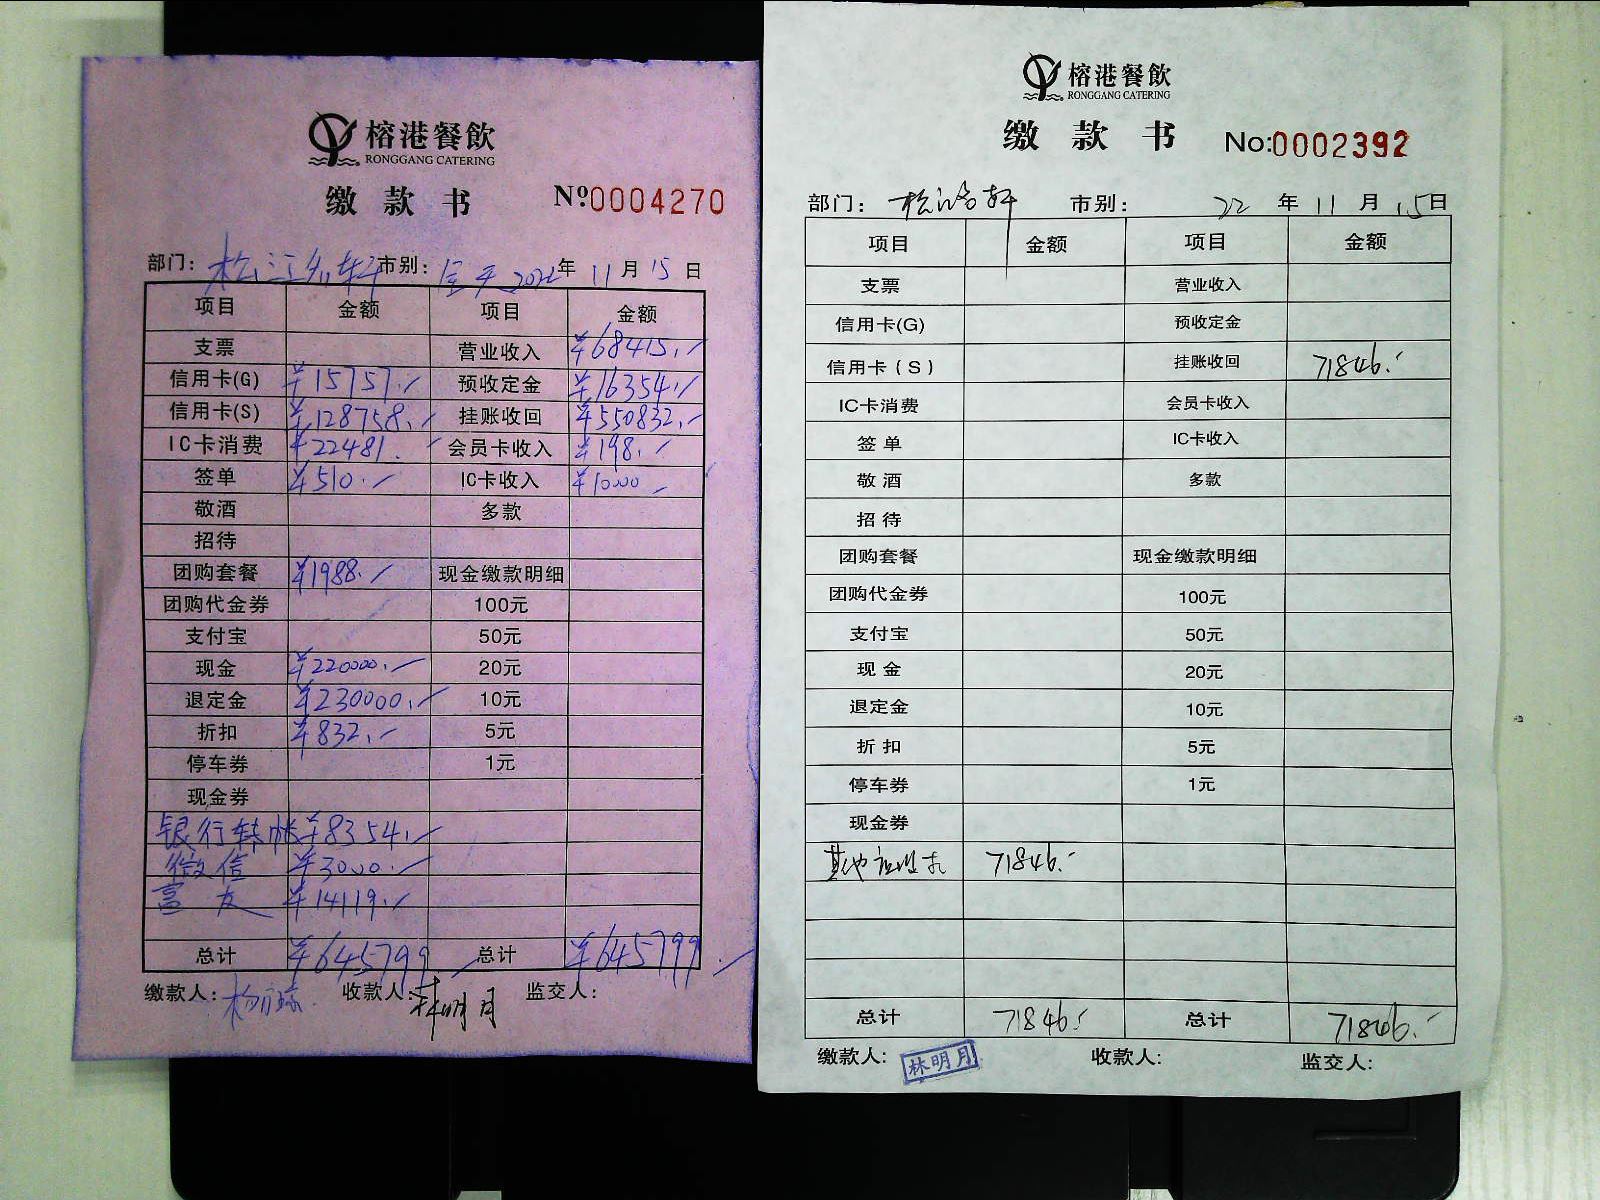 榕港餐飲
RONGGANG CATERING
缴款书 Nº0004270
部门: 市别: 2022年 11月 15日
项目 金额 项目 金额
支票 营业收入 ¥68415.-
信用卡(G) ¥15757.- 预收定金 ¥16354.-
信用卡(S) ¥128758.- 挂账收回 ¥550832.-
IC卡消费 ¥22481.- 会员卡收入 ¥198.-
签单 ¥510.- IC卡收入 ¥10000.-
敬酒 多款
招待
团购套餐 ¥1988.- 现金缴款明细
团购代金券 100元
支付宝 50元
现金 ¥220000.- 20元
退定金 ¥230000.- 10元
折扣 ¥832.- 5元
停车券 1元
现金券
银行转帐 ¥8354.-
微信 ¥3000.-
富友 ¥14119.-
总计 ¥645799.- 总计 ¥645799.-
缴款人: 收款人:林明月 监交人:
榕港餐飲
RONGGANG CATERING
缴款书 No:0002392
部门: 市别: 22年 11月 15日
项目 金额 项目 金额
支票 营业收入
信用卡(G) 预收定金
信用卡(S) 挂账收回 71846.-
IC卡消费 会员卡收入
签单 IC卡收入
敬酒 多款
招待
团购套餐 现金缴款明细
团购代金券 100元
支付宝 50元
现金 20元
退定金 10元
折扣 5元
停车券 1元
现金券
其他 71846.-
总计 71846.- 总计 71846.-
缴款人: 林明月 收款人: 监交人: